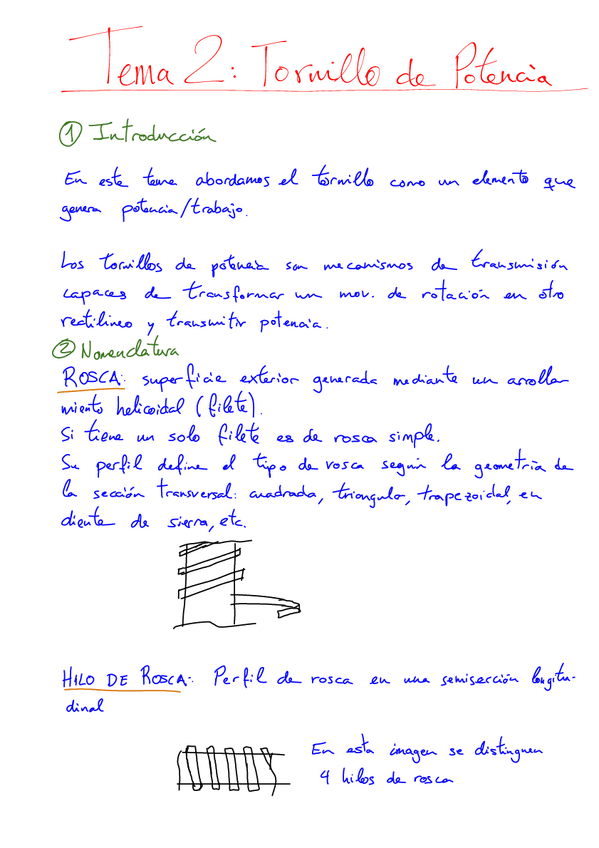 Tema 2: Tornillo de Potencia
① Introducción
En este tema abordamos el tornillo como un elemento que
genera potencia/trabajo.
Los tornillos de potencia son mecanismos de transmisión
capaces de transformar un mov. de rotación en otro
rectilíneo y transmitir potencia.
② Nomenclatura
ROSCA: superficie exterior generada mediante un arrolla-
miento helicoidal (filete).
Si tiene un solo filete es de rosca simple.
Su perfil define el tipo de rosca según la geometría de
la sección transversal: cuadrada, triangular, trapezoidal, en
diente de sierra, etc.
HILO DE ROSCA: Perfil de rosca en una semisección longitu-
dinal
En esta imagen se distinguen
4 hilos de rosca